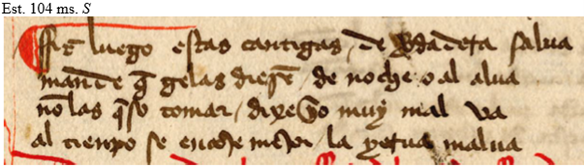 Est. 104 ms. S
ffiz luego estas cantigas / de v̾dadera salua
mande q̄ gelas diesē / de noche o al alua
nō las q̄so tomar / dixe yo muy mal va
al tienpo se encoje mejor / la yerua malua